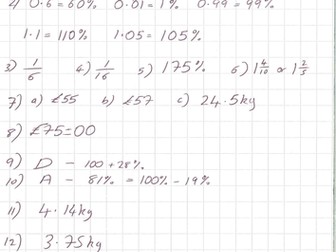 2) 0.6 = 60% 0.01 = 1% 0.99 = 99%
1.1 = 110% 1.05 = 105%
3) 1/6 4) 1/16 5) 175% 6) 1 4/10 or 1 2/5
7) a) £55 b) £57 c) 24.5kg
8) £75=00
9) D - 100 + 28%
10) A - 81% = 100% - 19%
11) 4.14kg
12) 3.75kg